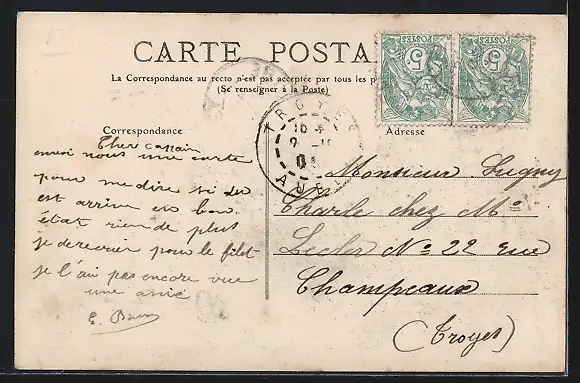 CARTE POSTA
La Correspondance au recto n'est pas acceptée par tous les p
(Se renseigner à la Poste)
POSTES 5
POSTES 5
TROYES
10
AUBE
Correspondance
Adresse
Cher copain
envoi nous une carte
pour me dire si
est arrivé en bon
état rien de plus
je pour le filet
je l'ai pas encore vue
une amie
E.
Monsieur Lugny
Charle chez Mr
Lecler No 22 rue
Champeaux
(Troyes)